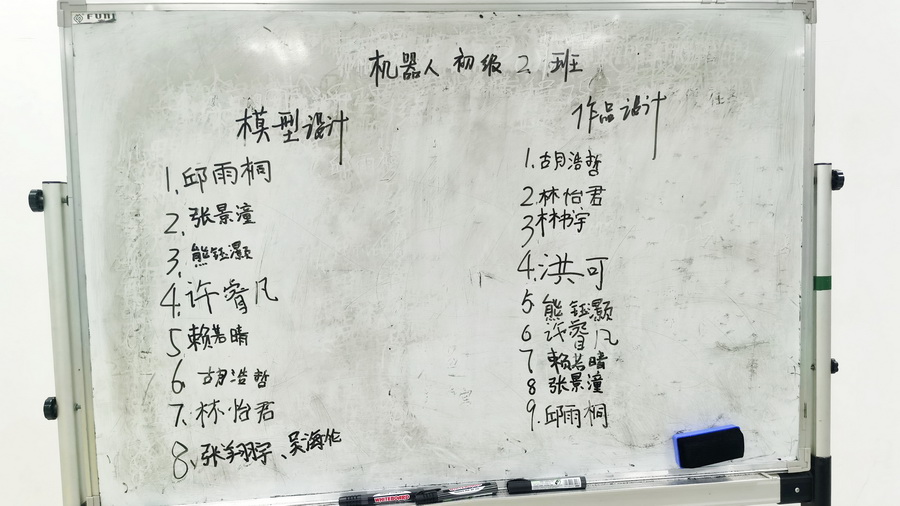 FUNI
机器人 初级 2 班
模型设计
1. 邱雨桐
2. 张景潼
3. 熊钰灏
4. 许睿凡
5. 赖若晴
6. 胡浩哲
7. 林怡君
8. 张翔宇、吴海伦
作品设计
1. 胡浩哲
2. 林怡君
3. 林书宇
4. 洪可
5. 熊钰灏
6 许睿凡
7 赖若晴
8 张景潼
9. 邱雨桐
WHITEBOARD